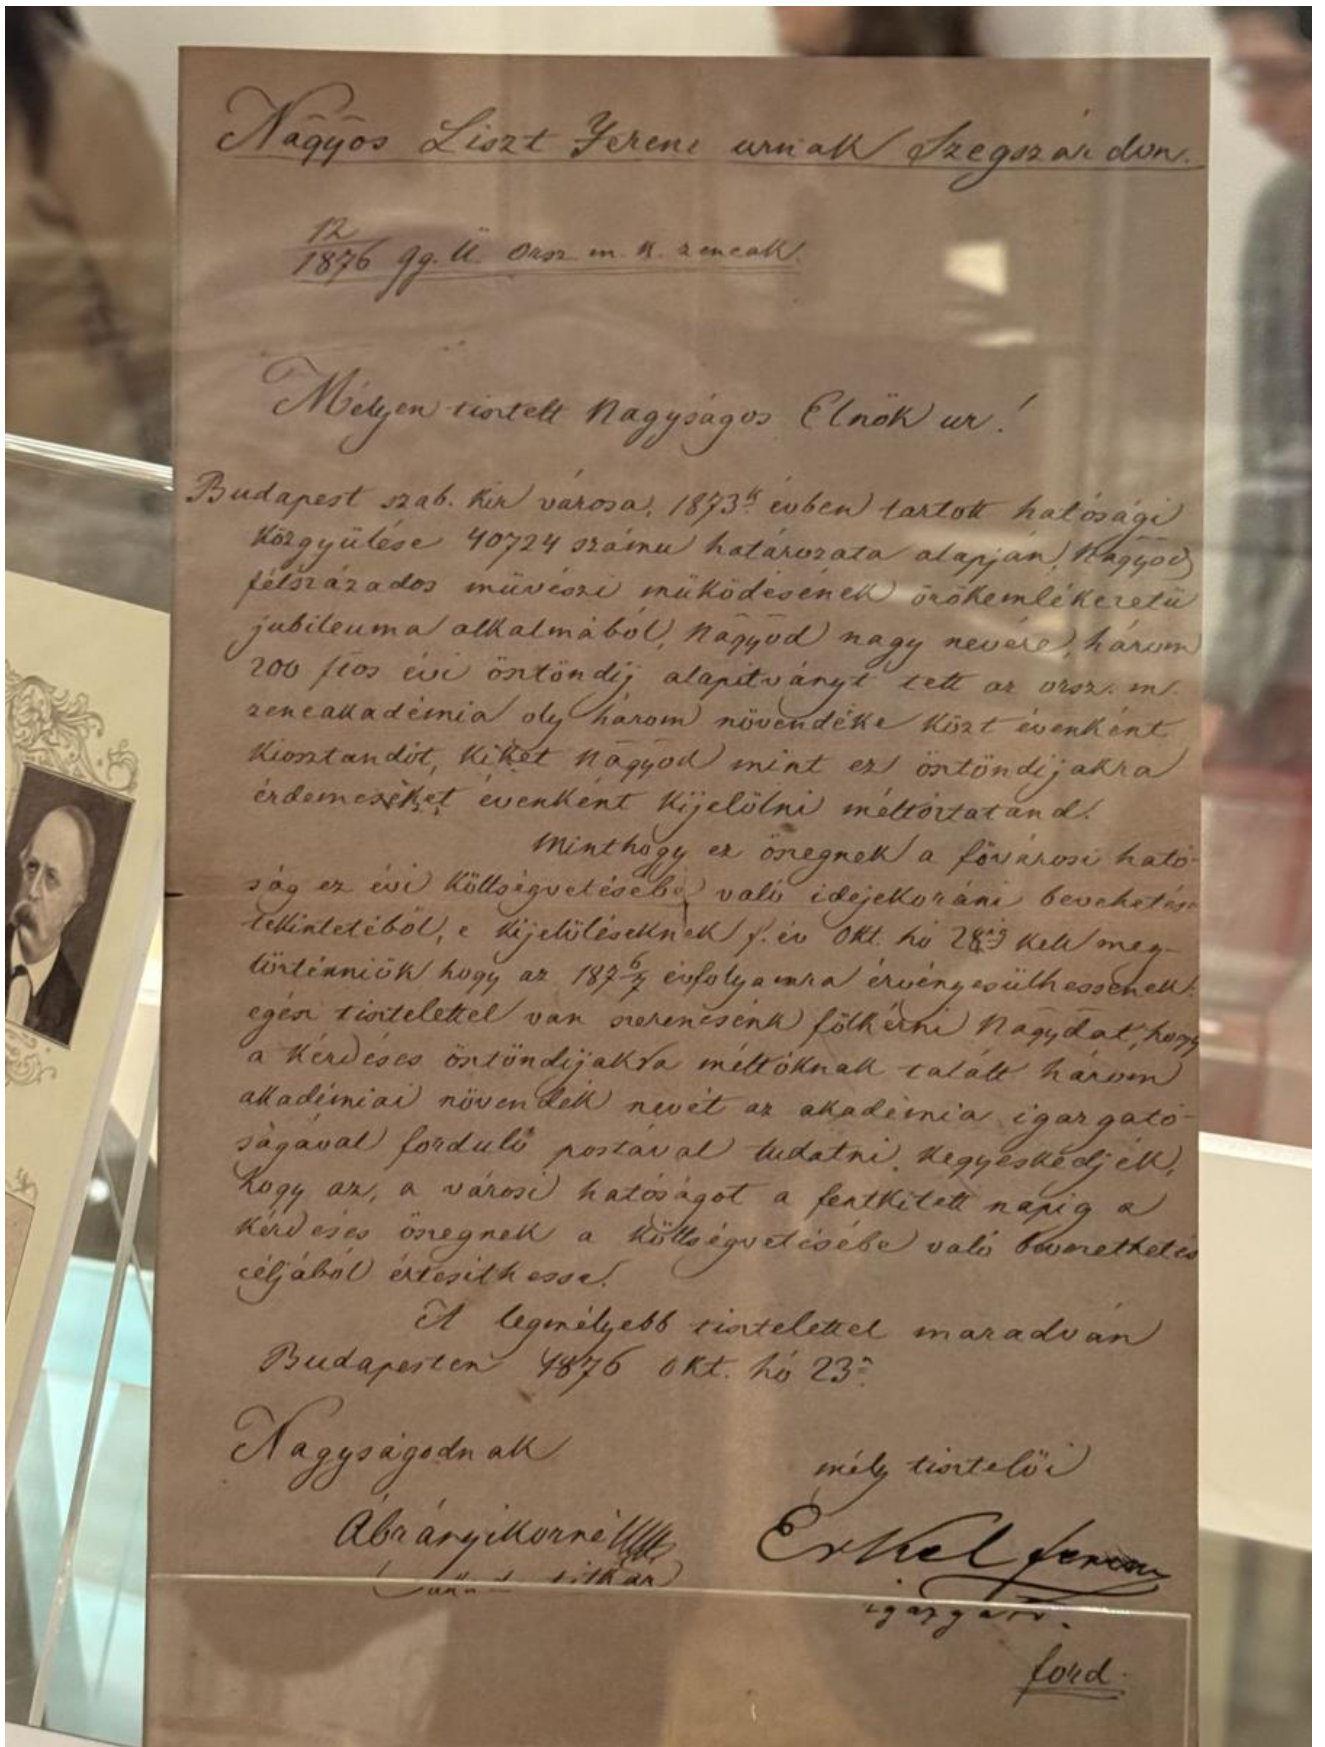 Nāgyos Liszt Ferenc urnak Szegszárdon.
12
1876 gg. ü. Orsz. m. k. zeneak.
Mélyen tisztelt Nagyságos Elnök ur!
Budapest szab. kir városa, 1873ik évben tartott hatósági
közgyülése 40724 számu határozata alapján, Nāgyod
félszázados müvészi müködésének örökemlékezetü
jubileuma alkalmából, Nāgyod nagy nevére, három
200 ftos évi ösztöndíj alapitványt tett az orsz. m.
zeneakadémia oly három növendéke közt évenként
kiosztandót, kiket Nāgyod mint ez ösztöndijakra
érdemeseket évenként kijelölni méltóztatand.
Minthogy ez öszegnek a fővárosi ható-
ság ez évi költségvetésébe való idejekoráni bevehetése
tekintetéből, e kijelöléseknek f. év Okt. hó 28ig kell meg-
történniök hogy az 1876/7 évfolyamra érvényesülhessenek:
egész tisztelettel van szerencsénk fölkérni Nāgydat, hogy
a kérdéses ösztöndijakra méltóknak talált három
akadémiai növendék nevét az akadémia igazgató-
ságával forduló postával tudatni kegyeskedjék,
hogy az, a városi hatóságot a fentkitett napig a
kérdéses öszegnek a költségvetésébe való bevezethetés
céljából értesithesse.
A legmélyebb tisztelettel maradván
Budapesten 1876 Okt. hó 23án
Nagyságodnak
mély tisztelői
Ábrányi Kornél
titkár
Erkel Ferenc
igazgató.
ford.